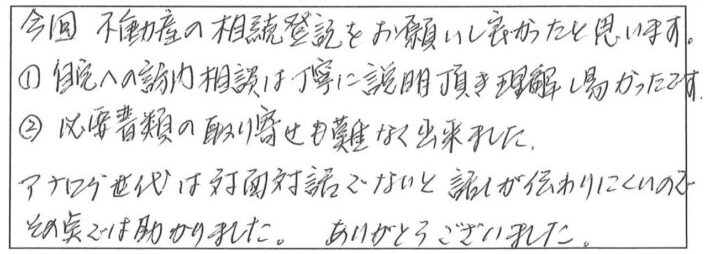 今回 不動産の相続登記をお願いし良かったと思います。
① 自宅への訪問相談は丁寧に説明頂き理解し易かったです。
② 必要書類の取り寄せも難なく出来ました。
アナログ世代は対面対話でないと話しが伝わりにくいので
その点では助かりました。 ありがとうございました。